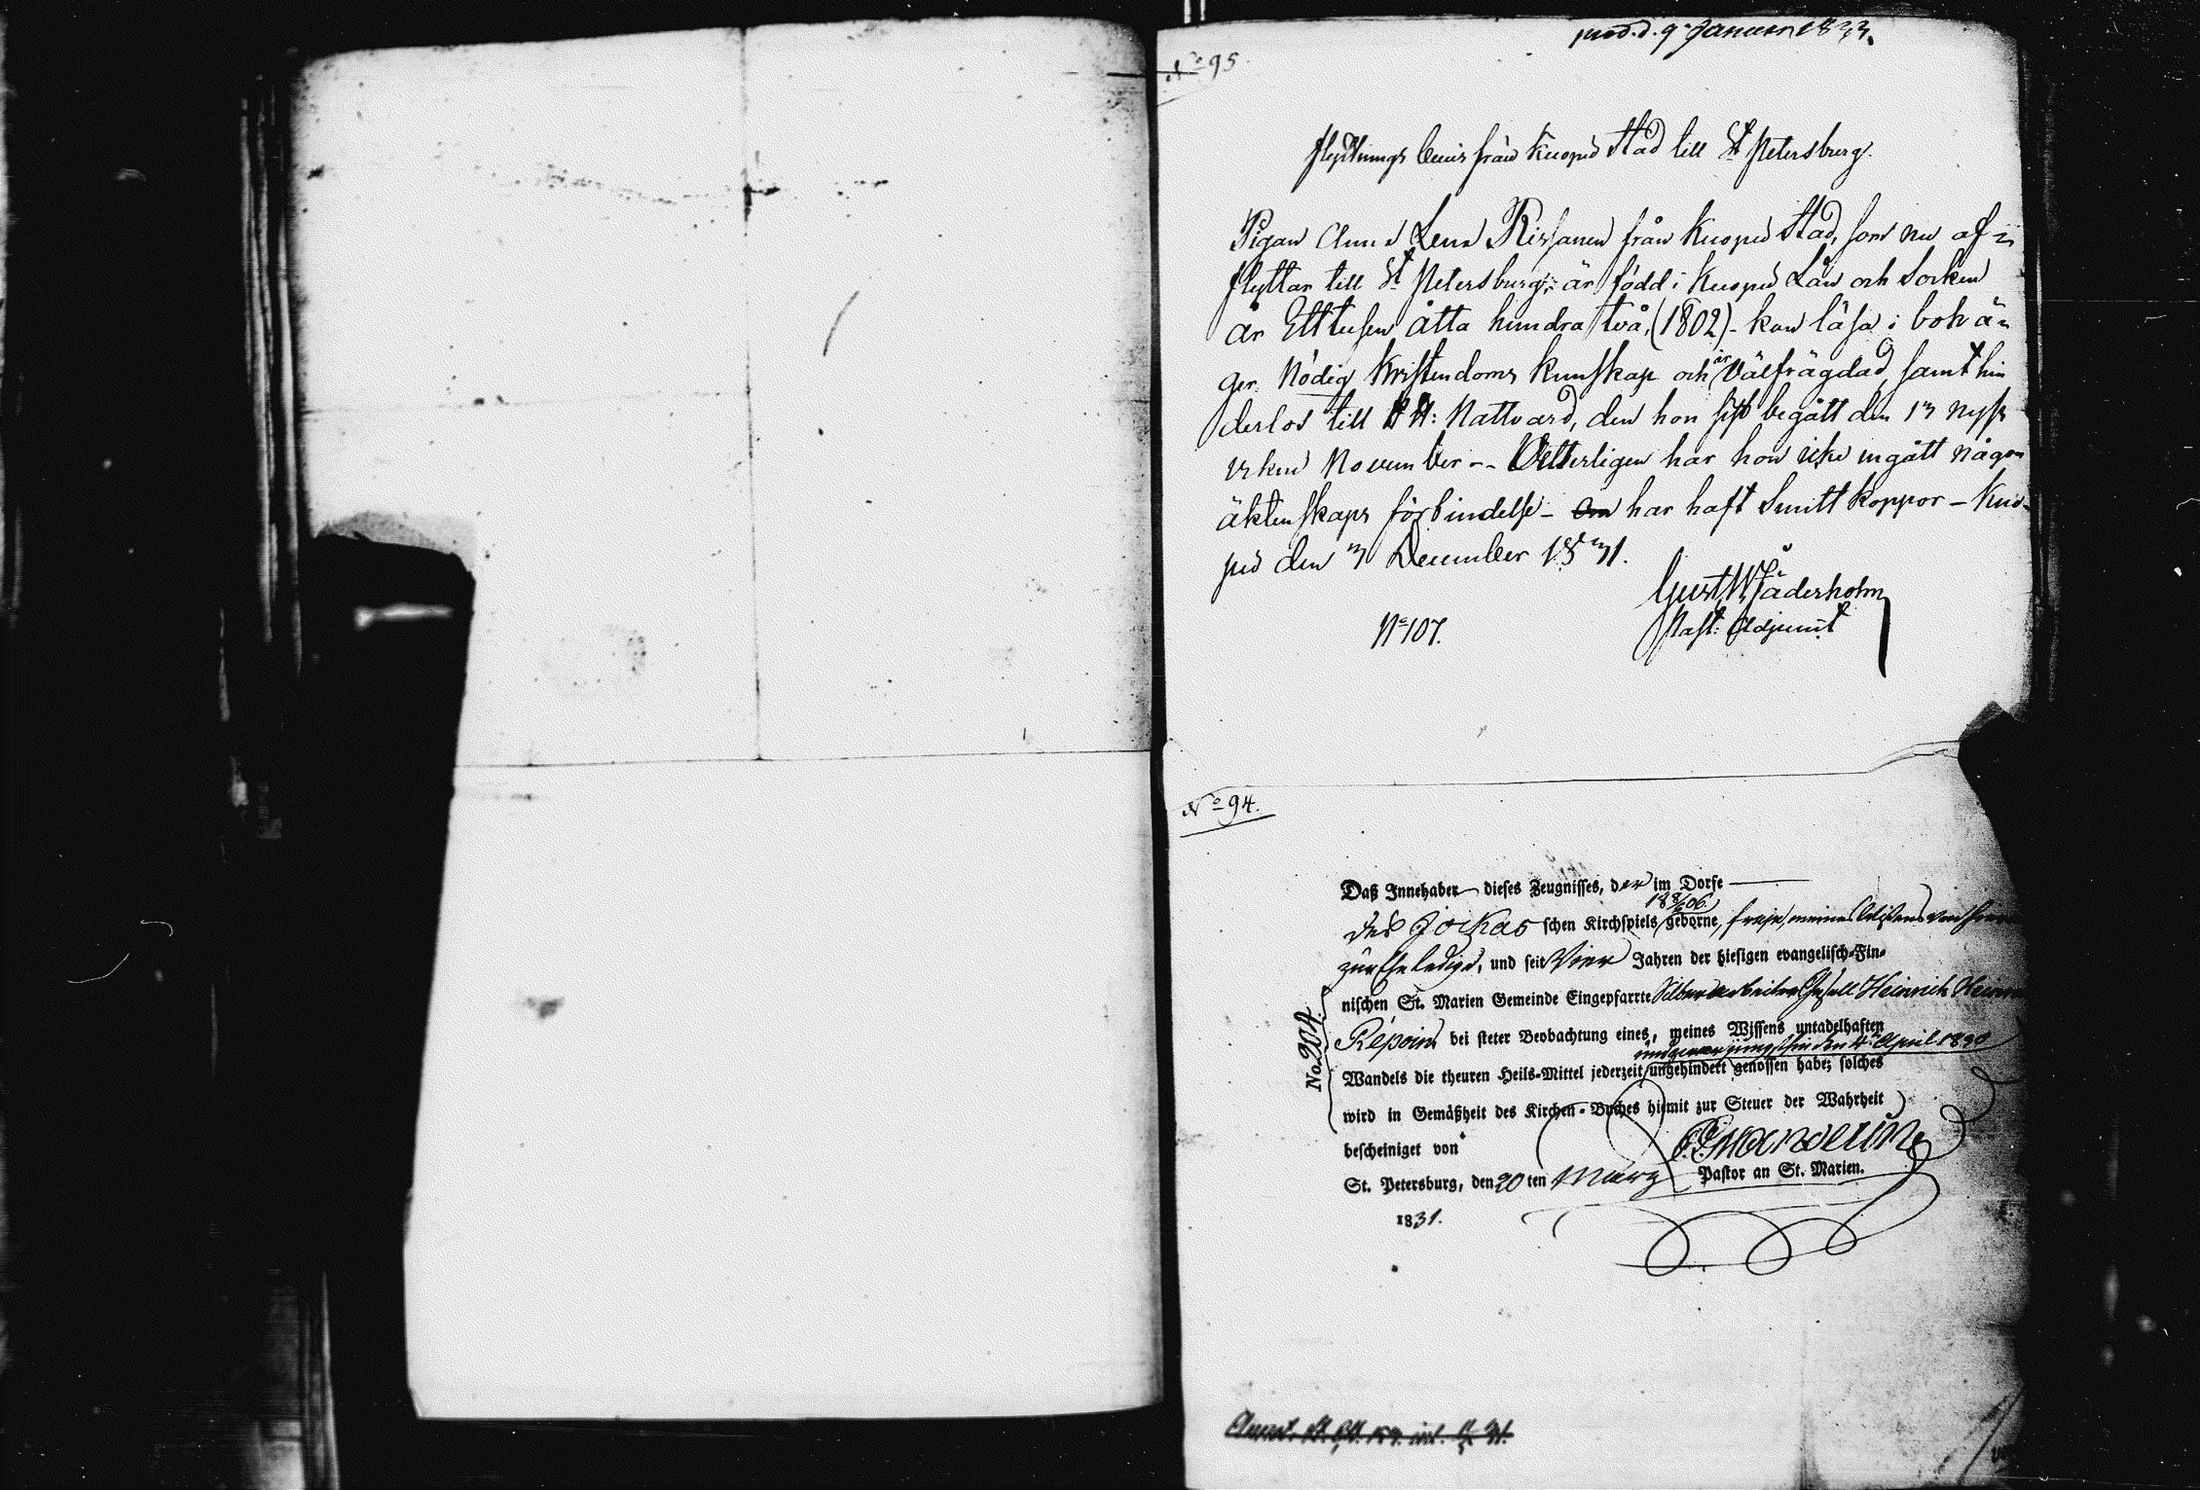 prod. d. 9 Januar 1833.
No 95.
flyttnings bevis från Kuopio Stad till St Petersburg.
Pigan Anna Lena Rissanen från Kuopio Stad, som nu af=
flyttar till St Petersburg; är född i Kuopio Län och Socken
år Ett tusen åtta hundra två, (1802) - kan läsa i bok ä=
ger nödig Kristendoms kunskap och är välfrägdad, samt hin
derlös till H H: Nattvard, den hon sist begått den 13 nyss
vikne November -- Vetterligen har hon icke ingått någon
äktenskaps förbindelse - har haft Smittkoppor - Kuo-
pio den 3 December 1831.
Gust W Fäderholm
No 107.
Past: Adjunct
No 94.
Daß Innehaber dieses Zeugnisses, der im Dorfe
des Jockas schen Kirchspiels geborne, freye, meines Wissens
zur Ehe ledige, und seit Vier Jahren der hiesigen evangelisch-Fin-
nischen St. Marien Gemeinde Eingepfarrte Silberarbeiter Gesell Heinrich
Repoin bei steter Beobachtung eines, meines Wissens untadelhaften
April 1830
Wandels die theuren Heils-Mittel jederzeit ungehindert genossen habe; solches
No. 204.
wird in Gemäßheit des Kirchen-Buches hiemit zur Steuer der Wahrheit
bescheiniget von
Pastor an St. Marien.
St. Petersburg, den 20 ten März
1831.